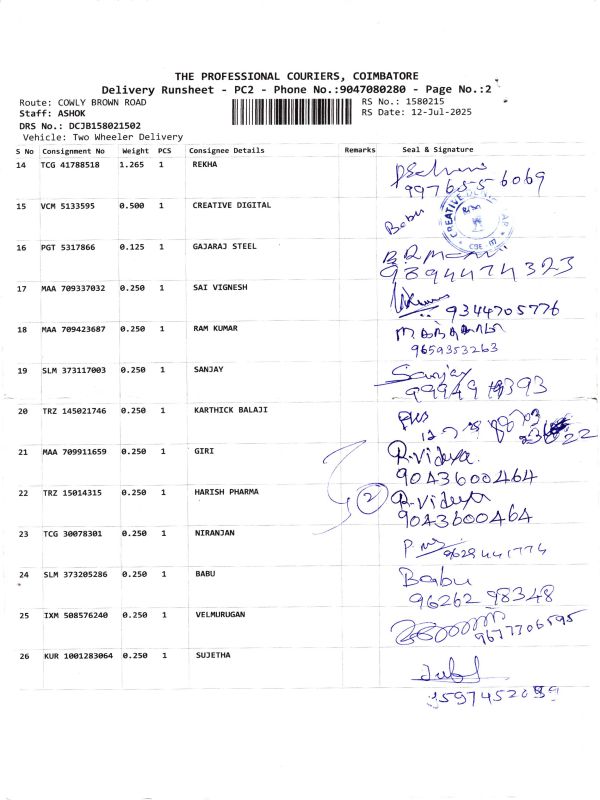 THE PROFESSIONAL COURIERS, COIMBATORE
Delivery Runsheet - PC2 - Phone No.:9047080280 - Page No.:2
Route: COWLY BROWN ROAD
RS No.: 1580215
Staff: ASHOK
RS Date: 12-Jul-2025
DRS No.: DCJB158021502
Vehicle: Two Wheeler Delivery
S No Consignment No Weight PCS Consignee Details Remarks Seal & Signature
14 TCG 41788518 1.265 1 REKHA
9976556069
15 VCM 5133595 0.500 1 CREATIVE DIGITAL Babu
16 PGT 5317866 0.125 1 GAJARAJ STEEL
9894474323
17 MAA 709337032 0.250 1 SAI VIGNESH
9344705776
18 MAA 709423687 0.250 1 RAM KUMAR
9659353263
19 SLM 373117003 0.250 1 SANJAY Sanjay
20 TRZ 145021746 0.250 1 KARTHICK BALAJI
21 MAA 709911659 0.250 1 GIRI R.Vidya
9043600464
22 TRZ 15014315 0.250 1 HARISH PHARMA 2 R.Vidya
9043600464
23 TCG 30078301 0.250 1 NIRANJAN
9629441774
24 SLM 373205286 0.250 1 BABU Babu
96262 98348
25 IXM 508576240 0.250 1 VELMURUGAN
9677706595
26 KUR 1001283064 0.250 1 SUJETHA